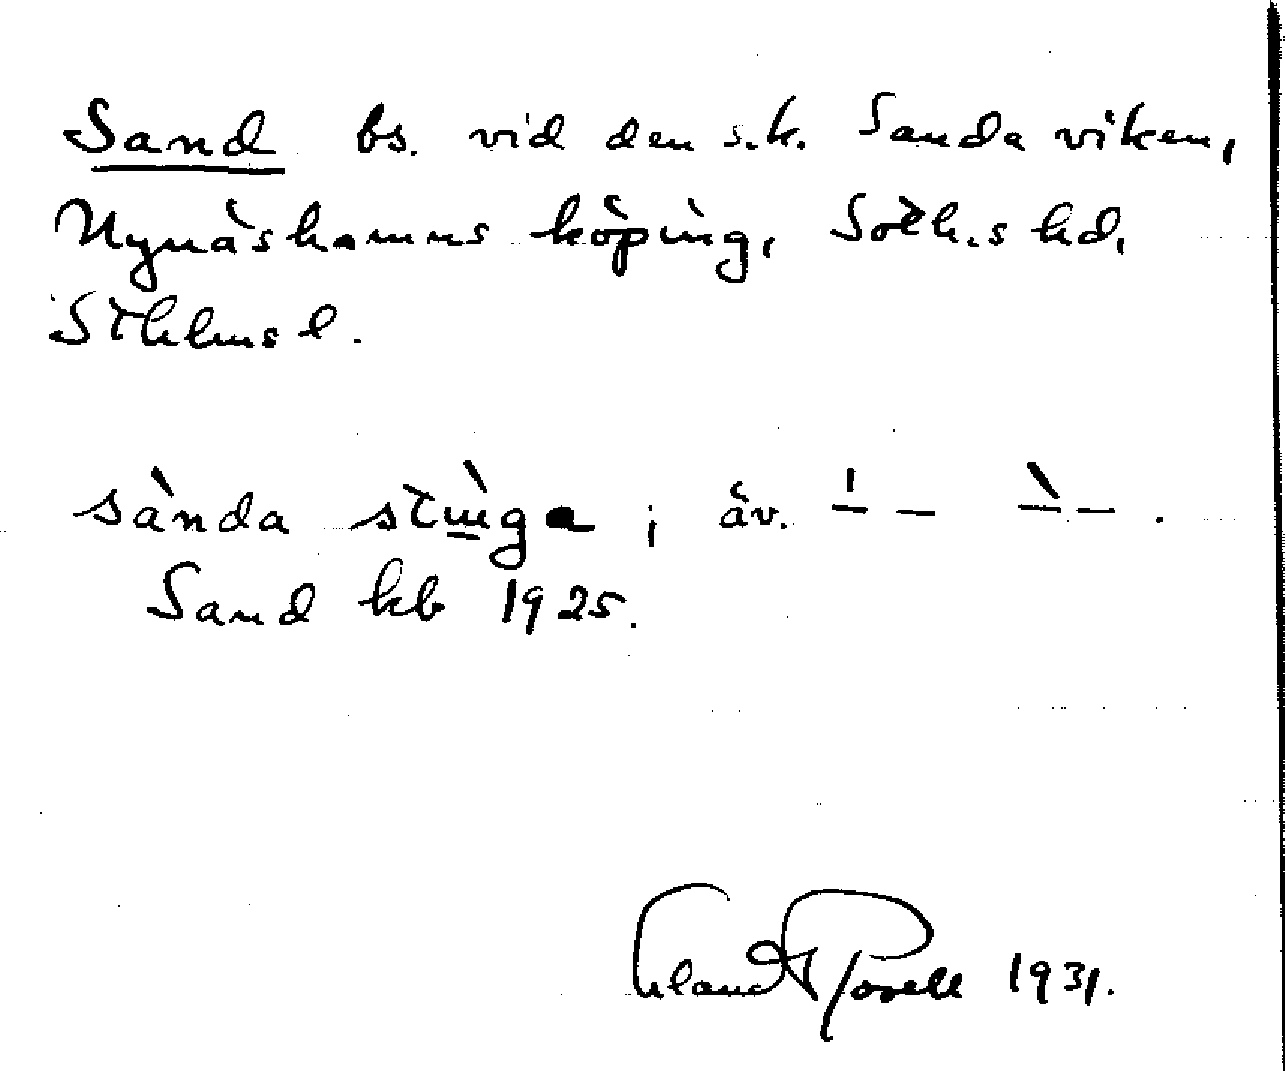 Sand bs. vid den s.k. Sandaviken,
Nynäshamns köping, Soth.s hd,
Sthlms l.
sànda stùga ; äv. ˈ– – ˋ– – .
Sand kb 1925.
Erland Rosell 1931.